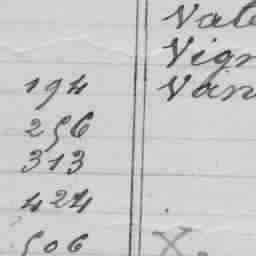 Vale
Vign
194 Van
256
313
424
506 X.